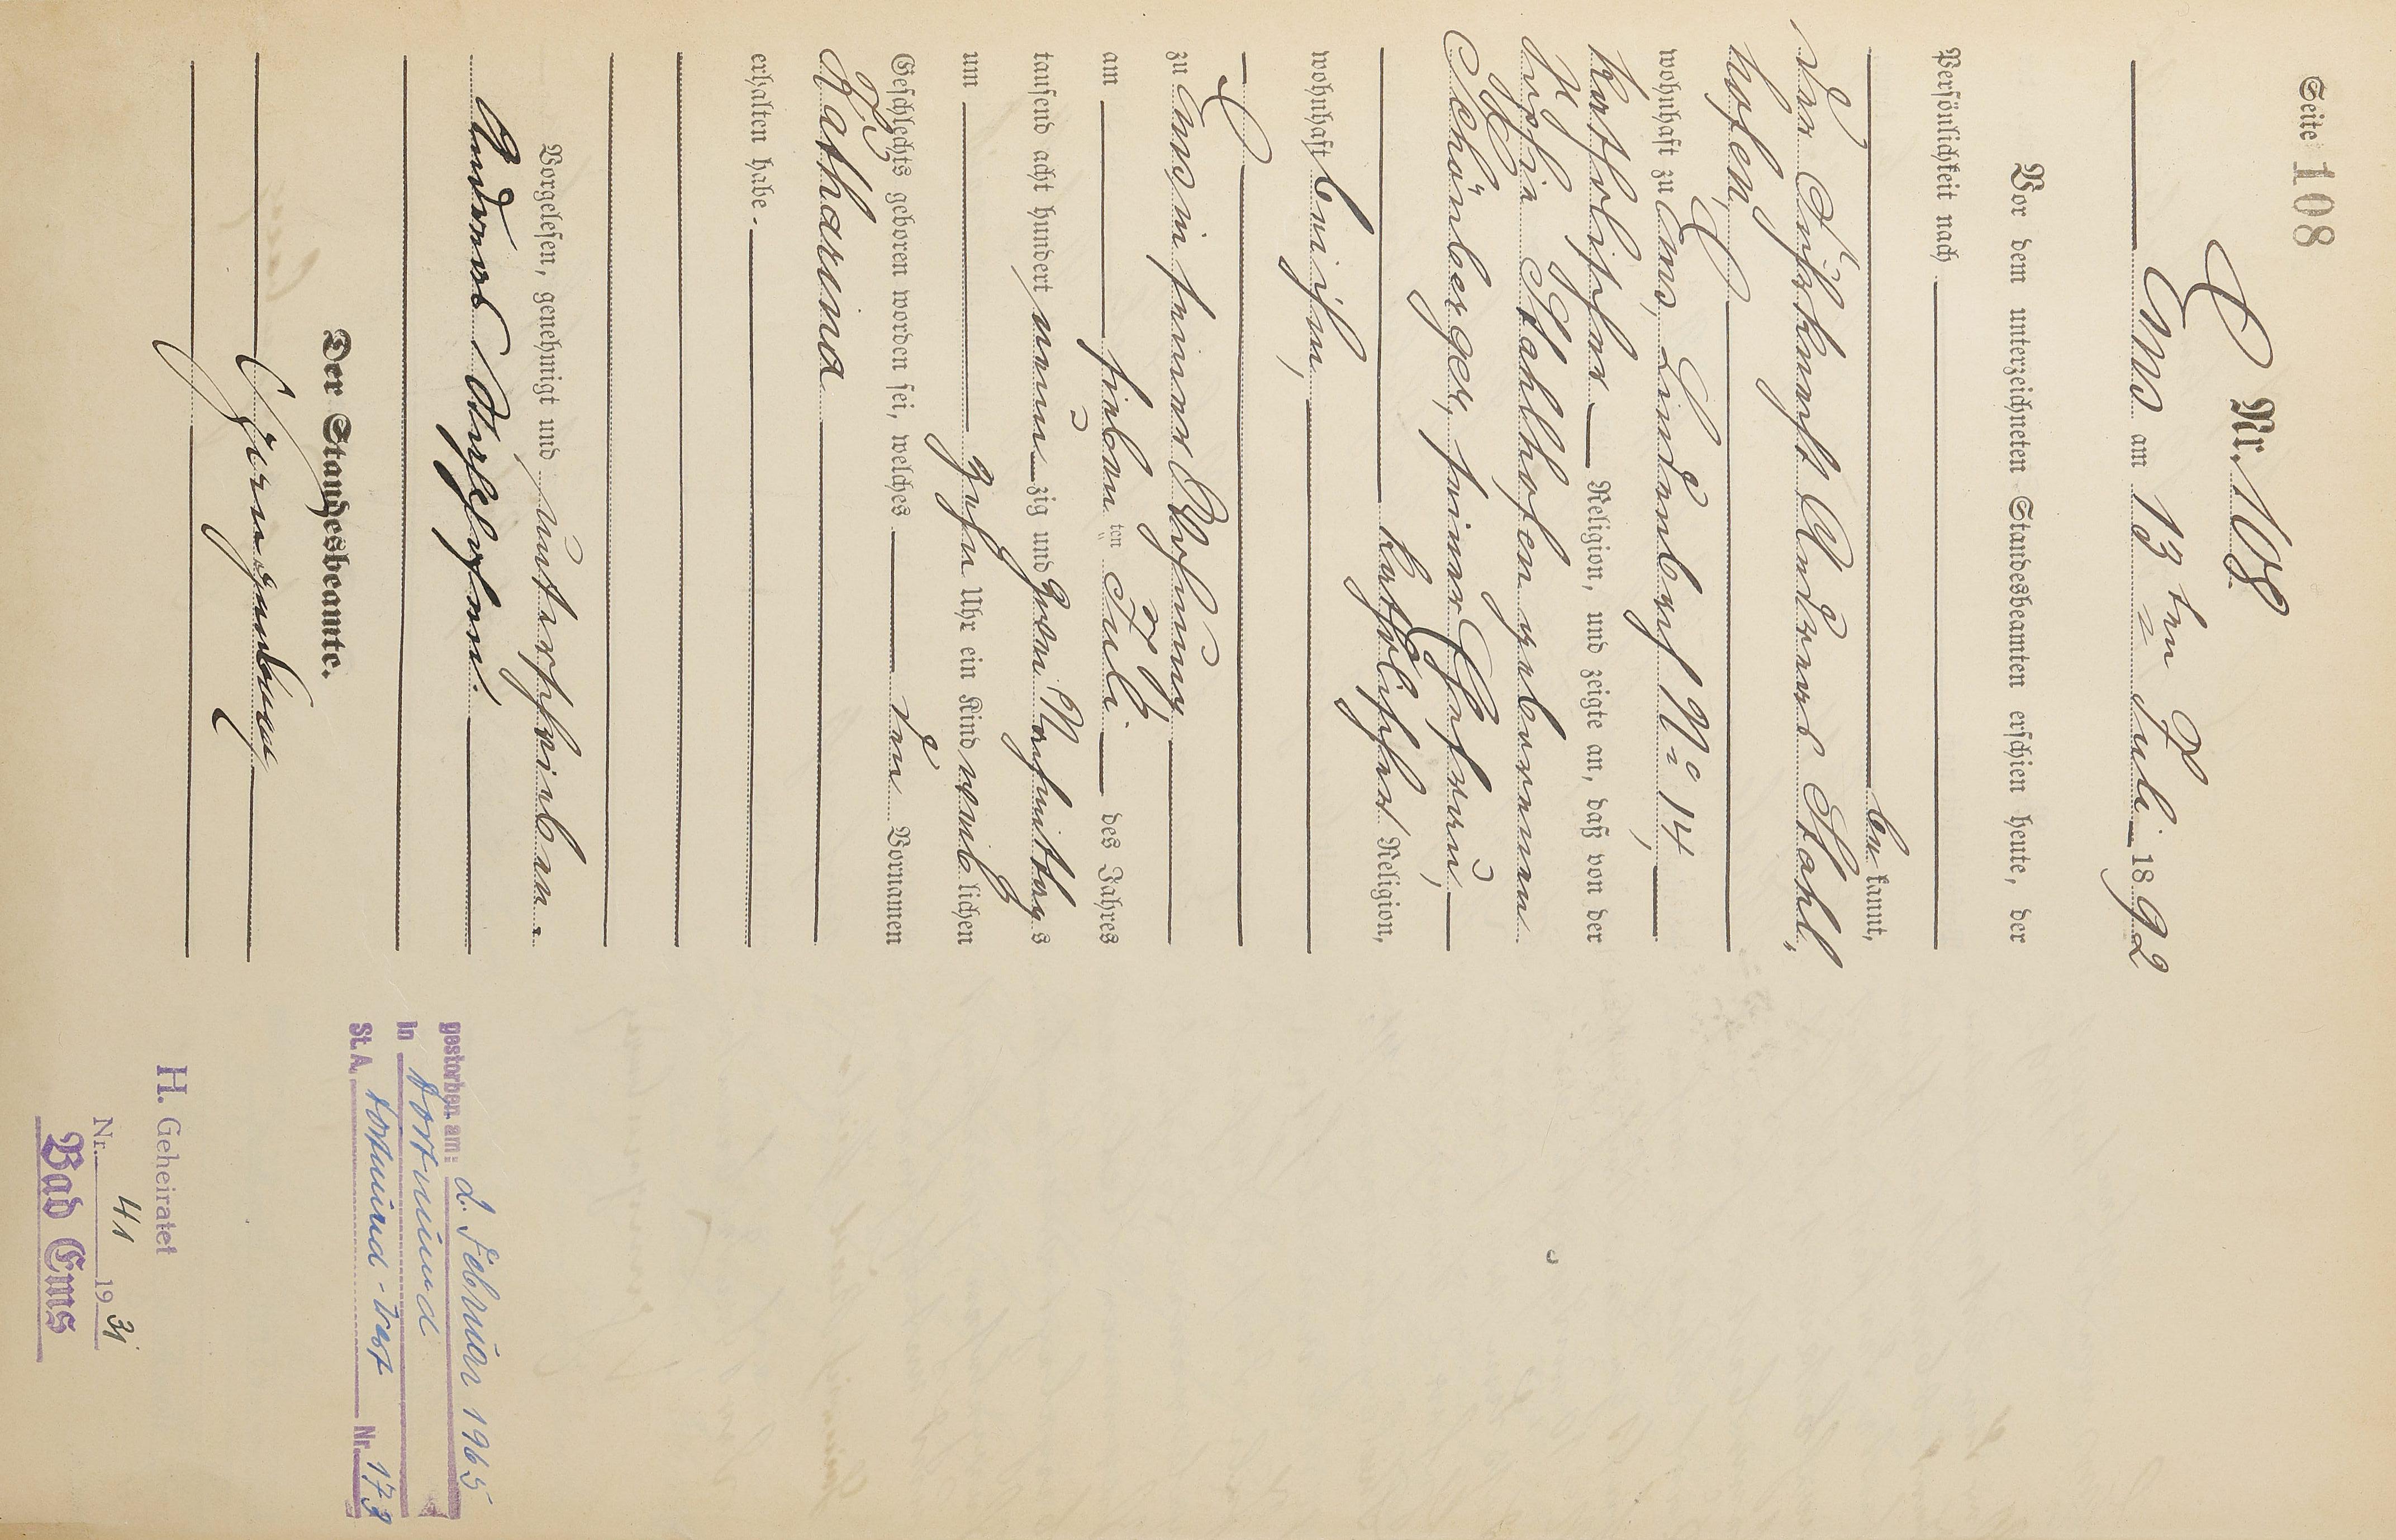 Seite 108
Nr. 108.
Ems am 13ten Juli 1892
Vor dem unterzeichneten Standesbeamten erschien heute, der
Persönlichkeit nach
be kannt,
der Andreas Stahl-
hofen,
wohnhaft zu Ems, Lindenbach No 14,
katholischer Religion, und zeigte an, daß von der
Stahlhofen geborenen
Schönberger, seiner Ehefrau,
katholischer Religion,
wohnhaft bei ihm,
zu Ems in seiner Wohnung
am sieben ten Juli des Jahres
tausend acht hundert neun zig und zwei Nachmittag s
um zehn Uhr ein Kind weib lichen
Geschlechts geboren worden sei, welches den Vornamen
Katharina
erhalten habe.
Vorgelesen, genehmigt und unterschrieben.
Andreas Stahlhofen.
Der Standesbeamte.
gestorben am: 2. Februar 1965
in Dortmund
St.A. Dortmund-Ost Nr. 173
H. Geheiratet
Nr. 41 19 31
Bad Ems